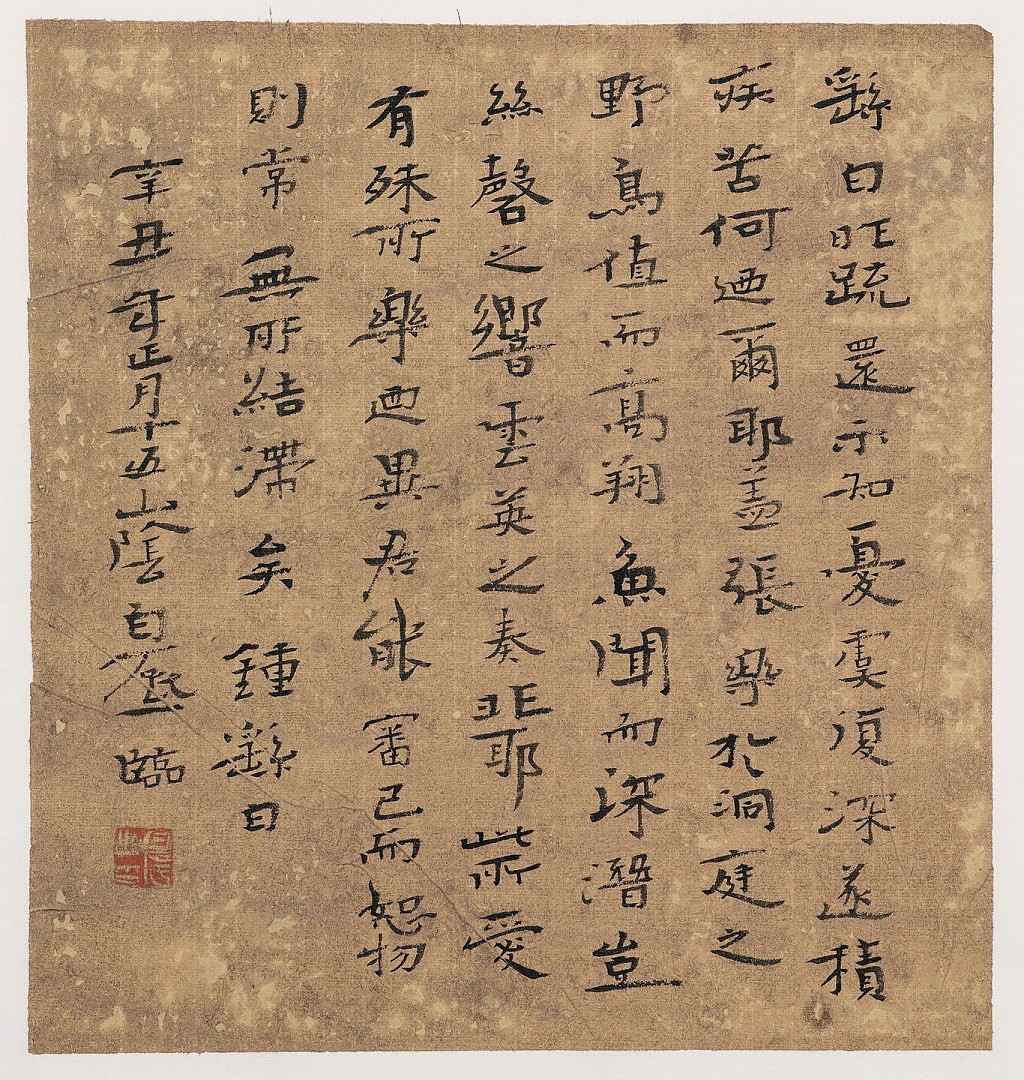 繇白昨疏還示知憂虞復深遂積
疾苦何迺爾耶蓋張樂於洞庭之
野鳥值而高翔魚聞而深潛豈
絲磬之響雲英之奏非耶此所愛
有殊所樂迺異君能審己而恕物
則常無所結滯矣鍾繇白
辛丑年正月十五山陰白熙臨